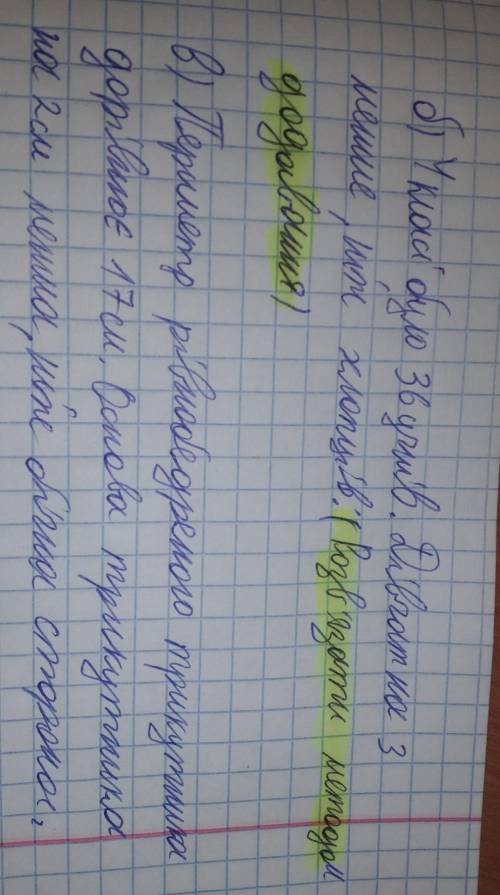 б) У класі було 3 учнів. Дівчат на 3
менше, ніж хлопців. (Розв'язати методом
додавання)
в) Периметр рівнобедреного трикутника
дорівнює 17 см. Основа трикутника
на 2 см менша, ніж бічна сторона.